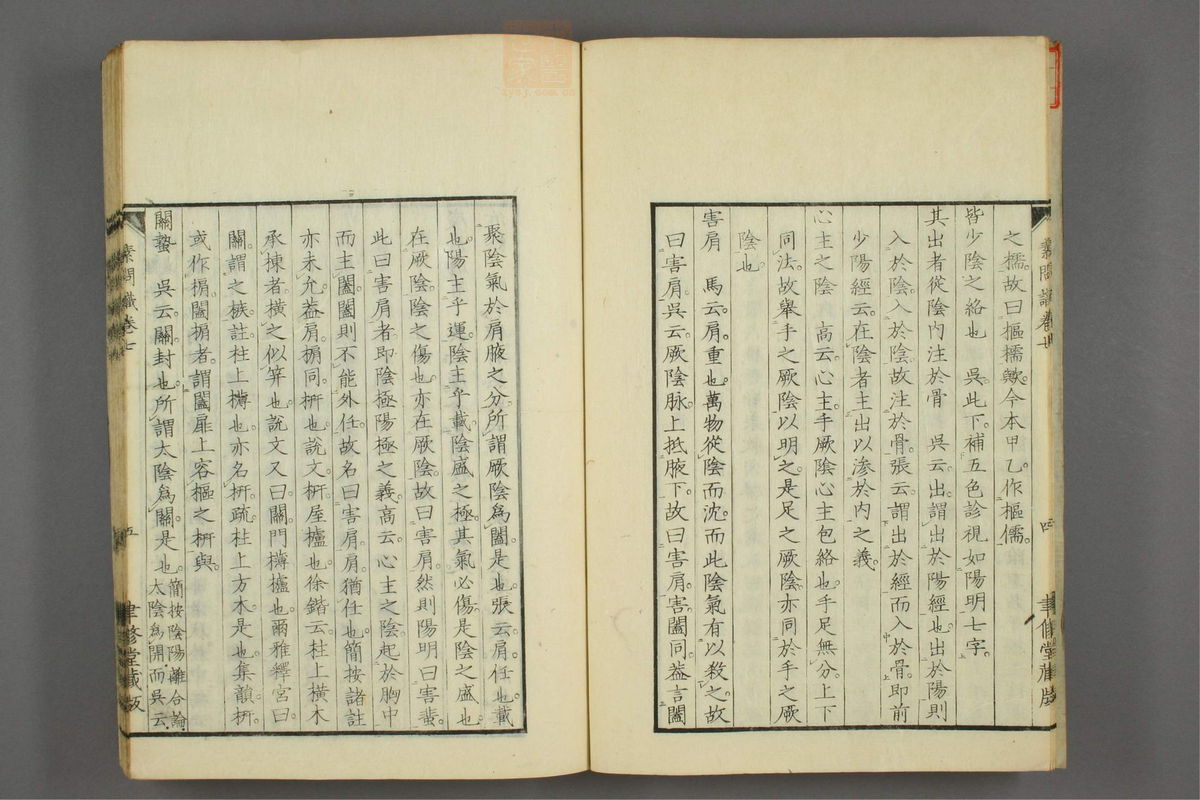 之檽故曰樞檽歟今本甲乙作樞儒
皆少陰之絡也　吳此下補五色診視如陽明七字
其出者從陰內注於骨　吳云出謂出於陽經也出於陽則
入於陰入於陰故注於骨張云謂出於經而入於骨即前
少陽經云在陰者主出以滲於內之義
心主之陰　高云心主手厥陰心主包絡也手足無分上下
同法故舉手之厥陰以明之是足之厥陰亦同於手之厥
陰也
害肩　馬云肩重也萬物從陰而沈而此陰氣有以殺之故
曰害肩吳云厥陰脉上抵腋下故曰害肩害闔同葢言闔
聚陰氣於肩腋之分所謂厥陰為闔是也張云肩任也載
也陽主乎運陰主乎載陰盛之極其氣必傷是陰之盛也
在厥陰陰之傷也亦在厥陰故曰害肩然則陽明曰害蜚
此曰害肩者即陰極陽極之義高云心主之陰起於胸中
而主闔闔則不能外任故名曰害肩肩猶任也簡按諸註
亦未允葢肩㮞同枅也說文枅屋櫨也徐鍇云柱上橫木
承棟者橫之似筓也說文又曰關門欂櫨也爾雅釋宮曰
關謂之㮞註柱上欂也亦名枅疏柱上方木是也集韻枅
或作㮞闔㮞者謂闔扉上容樞之枅與
關蟄　吳云關封也所謂太陰為關是也簡按陰陽離合論
太陰為開而吳云
素問識卷七
五
聿修堂藏版
四